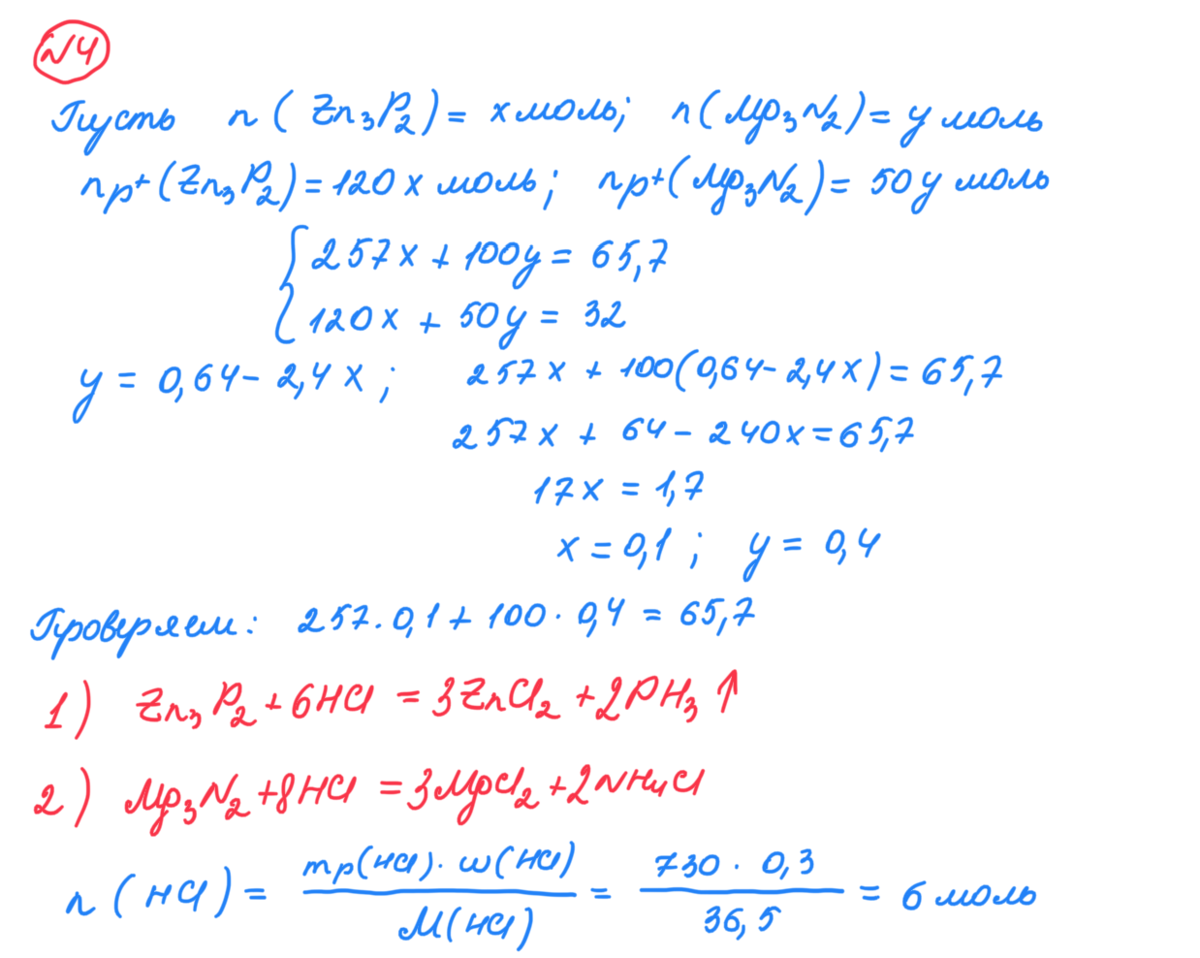 №4
Пусть n(Zn₃P₂) = x моль; n(Mg₃N₂) = y моль
np⁺(Zn₃P₂) = 120x моль; np⁺(Mg₃N₂) = 50y моль
{257x + 100y = 65,7
120x + 50y = 32
y = 0,64 - 2,4x; 257x + 100(0,64 - 2,4x) = 65,7
257x + 64 - 240x = 65,7
17x = 1,7
x = 0,1; y = 0,4
Проверяем: 257·0,1 + 100·0,4 = 65,7
1) Zn₃P₂ + 6HCl = 3ZnCl₂ + 2PH₃↑
2) Mg₃N₂ + 8HCl = 3MgCl₂ + 2NH₄Cl
n(HCl) = mр(HCl)·w(HCl) / M(HCl) = 730·0,3 / 36,5 = 6 моль